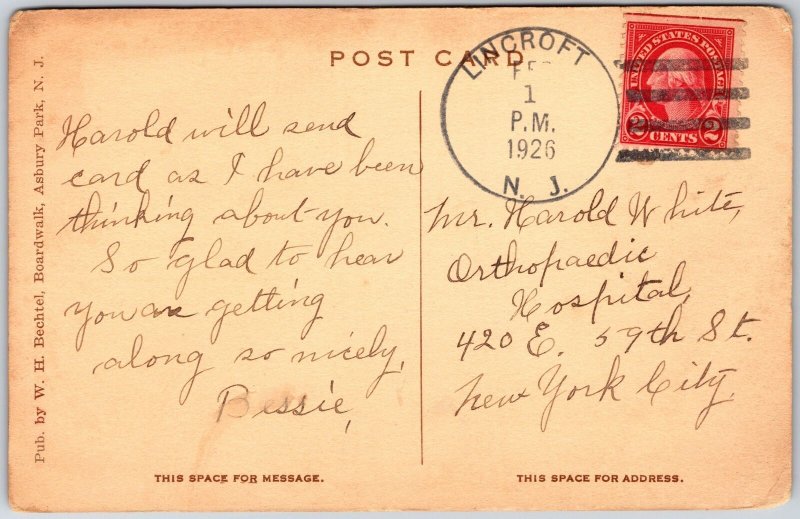 POST CARD
LINCROFT
FEB
1
P.M.
1926
N. J.
UNITED STATES POSTAGE
2 CENTS 2
Harold will send
card as I have been
thinking about you.
So glad to hear
you are getting
along so nicely,
Bessie,
Mr. Harold White,
Orthopaedic
Hospital,
420 E. 59th St.
New York City,
THIS SPACE FOR MESSAGE.
THIS SPACE FOR ADDRESS.
Pub. by W. H. Bechtel, Boardwalk, Asbury Park, N. J.